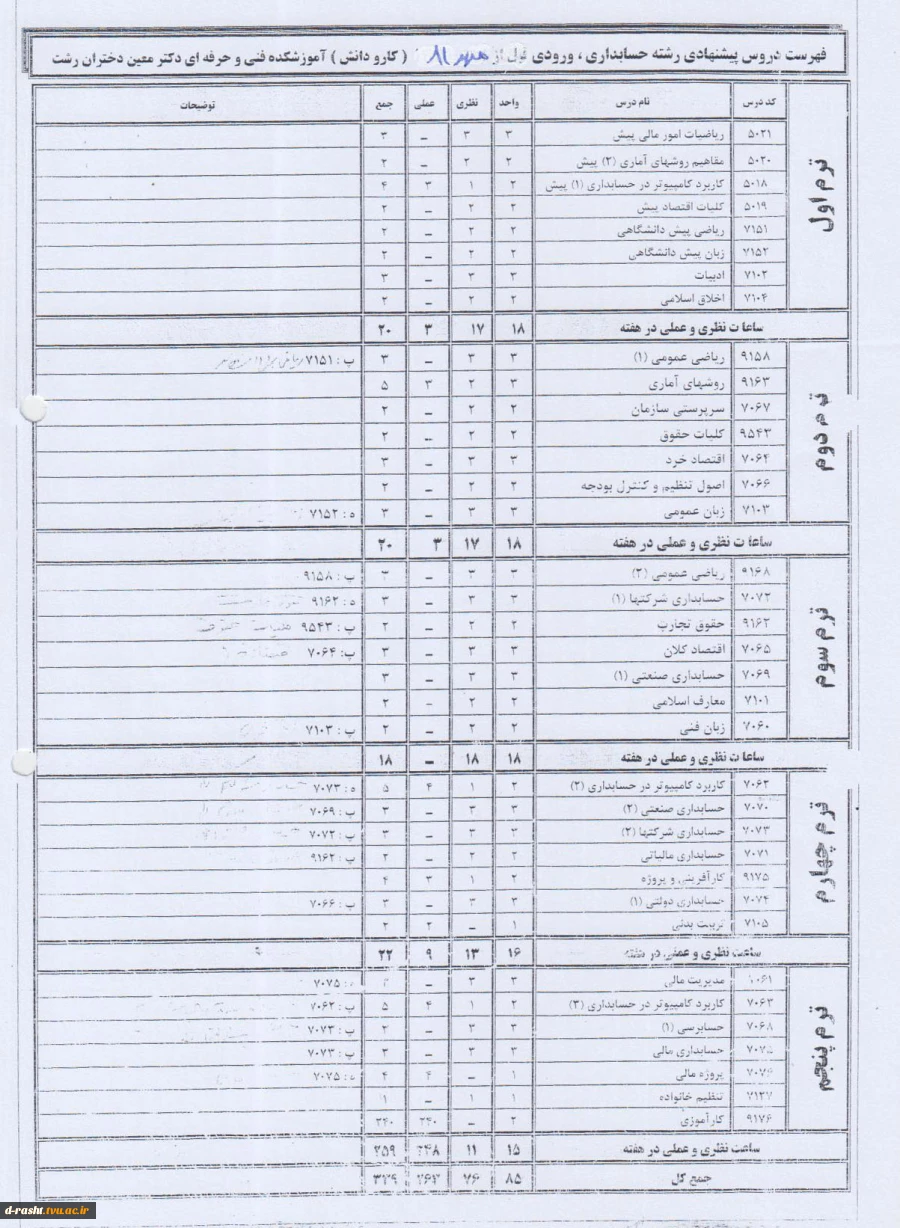 فهرست دروس پیشنهادی رشته حسابداری ، ورودی از مهر ۸۱ ( کارو دانش ) آموزشکده فنی و حرفه ای دکتر معین دختران رشت
کد درس نام درس واحد نظری عملی جمع توضیحات
ترم اول
۵۰۲۱ ریاضیات امور مالی پیش ۳ ۳ ـ ۳
۵۰۲۰ مفاهیم روشهای آماری (۲) پیش ۲ ۲ ـ ۲
۵۰۱۸ کاربرد کامپیوتر در حسابداری (۱) پیش ۲ ۱ ۳ ۴
۵۰۱۹ کلیات اقتصاد پیش ۲ ۲ ـ ۲
۷۱۵۱ ریاضی پیش دانشگاهی ۲ ۲ ـ ۲
۷۱۵۲ زبان پیش دانشگاهی ۲ ۲ ـ ۲
۷۱۰۲ ادبیات ۳ ۳ ـ ۳
۷۱۰۴ اخلاق اسلامی ۲ ۲ ـ ۲
ساعات نظری و عملی در هفته ۱۸ ۱۷ ۳ ۲۰
ترم دوم
۹۱۵۸ ریاضی عمومی (۱) ۳ ۳ ـ ۳ پ : ۷۱۵۱
۹۱۶۳ روشهای آماری ۳ ۲ ۳ ۵
۷۰۶۷ سرپرستی سازمان ۲ ۲ ـ ۲
۹۵۴۳ کلیات حقوق ۲ ۲ ـ ۲
۷۰۶۴ اقتصاد خرد ۳ ۳ ـ ۳
۷۰۶۶ اصول تنظیم و کنترل بودجه ۲ ۲ ـ ۲
۷۱۰۳ زبان عمومی ۳ ۳ ـ ۳ ه : ۷۱۵۲
ساعات نظری و عملی در هفته ۱۸ ۱۷ ۳ ۲۰
ترم سوم
۹۱۶۸ ریاضی عمومی (۲) ۳ ۳ ـ ۳ پ : ۹۱۵۸
۷۰۷۲ حسابداری شرکتها (۱) ۳ ۳ ـ ۳ ه : ۹۱۶۲
۹۱۶۲ حقوق تجارت ۲ ۲ ـ ۲ پ : ۹۵۴۳
۷۰۶۵ اقتصاد کلان ۳ ۳ ـ ۳ پ : ۷۰۶۴
۷۰۶۹ حسابداری صنعتی (۱) ۳ ۳ ـ ۳
۷۱۰۱ معارف اسلامی ۲ ۲ ـ ۲
۷۰۶۰ زبان فنی ۲ ۲ ـ ۲ پ : ۷۱۰۳
ساعات نظری و عملی در هفته ۱۸ ۱۸ ـ ۱۸
ترم چهارم
۷۰۶۲ کاربرد کامپیوتر در حسابداری (۲) ۲ ۱ ۴ ۵ ه : ۷۰۷۳
۷۰۷۰ حسابداری صنعتی (۲) ۳ ۳ ـ ۳ پ : ۷۰۶۹
۷۰۷۳ حسابداری شرکتها (۲) ۳ ۳ ـ ۳ پ : ۷۰۷۲
۷۰۷۱ حسابداری مالیاتی ۲ ۲ ـ ۲ پ : ۹۱۶۲
۹۱۷۵ کارآفرینی و پروژه ۲ ۱ ۳ ۴
۷۰۷۴ حسابداری دولتی (۱) ۳ ۳ ـ ۳ پ : ۷۰۶۶
۷۱۰۵ تربیت بدنی ۱ ـ ۲ ۲
ساعت نظری و عملی در هفته ۱۶ ۱۳ ۹ ۲۲
ترم پنجم
۷۰۶۱ مدیریت مالی ۳ ۳ ـ ۷۰۷۵
۷۰۶۳ کاربرد کامپیوتر در حسابداری (۳) ۲ ۱ ۴ ۵ پ : ۷۰۶۲
۷۰۶۸ حسابرسی (۱) ۳ ۳ ـ پ : ۷۰۷۳
۷۰۷۵ حسابداری مالی ۳ ۳ ـ ۳ پ : ۷۰۷۳
۷۰۷۶ پروژه مالی ۱ ـ ۴ ۴ ه : ۷۰۷۵
۷۱۲۷ تنظیم خانواده ۱ ۱ ـ ۱
۹۱۷۶ کارآموزی ۲ ـ ۲۴۰ ۲۴۰
ساعت نظری و عملی در هفته ۱۵ ۱۱ ۲۴۸ ۲۵۹
جمع کل ۸۵ ۷۶ ۲۶۳ ۳۳۹
d-rasht.tvu.ac.ir